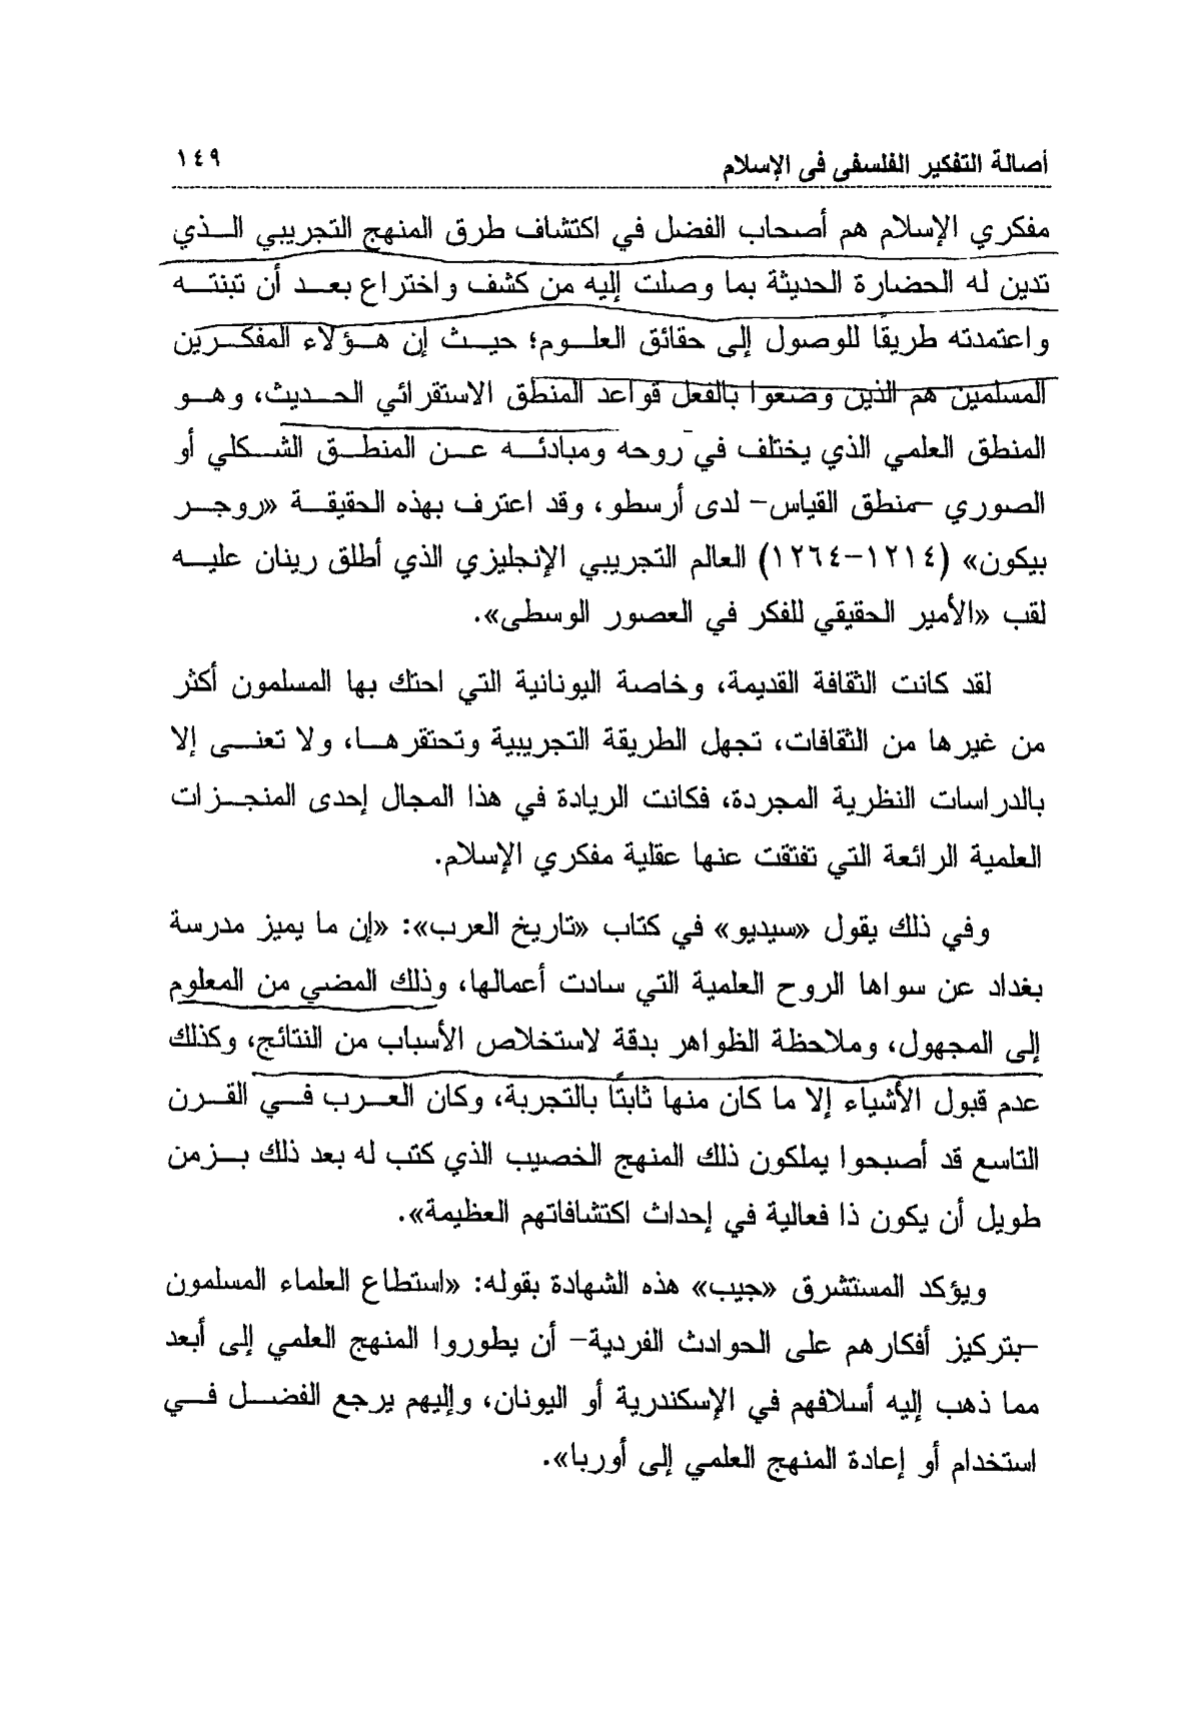 أصالة التفكير الفلسفى فى الإسلام ١٤٩
مفكري الإسلام هم أصحاب الفضل في اكتشاف طرق المنهج التجريبي الذي
تدين له الحضارة الحديثة بما وصلت إليه من كشف واختراع بعد أن تبنته
واعتمدته طريقًا للوصول إلى حقائق العلوم؛ حيث إن هؤلاء المفكرين
المسلمين هم الذين وضعوا بالفعل قواعد المنطق الاستقرائي الحديث، وهو
المنطق العلمي الذي يختلف في روحه ومبادئه عن المنطق الشكلي أو
الصوري –منطق القياس– لدى أرسطو، وقد اعترف بهذه الحقيقة «روجر
بيكون» (١٢١٤–١٢٦٤) العالم التجريبي الإنجليزي الذي أطلق رينان عليه
لقب «الأمير الحقيقي للفكر في العصور الوسطى».
لقد كانت الثقافة القديمة، وخاصة اليونانية التي احتك بها المسلمون أكثر
من غيرها من الثقافات، تجهل الطريقة التجريبية وتحتقرها، ولا تعنى إلا
بالدراسات النظرية المجردة، فكانت الريادة في هذا المجال إحدى المنجزات
العلمية الرائعة التي تفتقت عنها عقلية مفكري الإسلام.
وفي ذلك يقول «سيديو» في كتاب «تاريخ العرب»: «إن ما يميز مدرسة
بغداد عن سواها الروح العلمية التي سادت أعمالها، وذلك المضي من المعلوم
إلى المجهول، وملاحظة الظواهر بدقة لاستخلاص الأسباب من النتائج، وكذلك
عدم قبول الأشياء إلا ما كان منها ثابتًا بالتجربة، وكان العرب في القرن
التاسع قد أصبحوا يملكون ذلك المنهج الخصيب الذي كتب له بعد ذلك بزمن
طويل أن يكون ذا فعالية في إحداث اكتشافاتهم العظيمة».
ويؤكد المستشرق «جيب» هذه الشهادة بقوله: «استطاع العلماء المسلمون
–بتركيز أفكارهم على الحوادث الفردية– أن يطوروا المنهج العلمي إلى أبعد
مما ذهب إليه أسلافهم في الإسكندرية أو اليونان، وإليهم يرجع الفضل في
استخدام أو إعادة المنهج العلمي إلى أوربا».